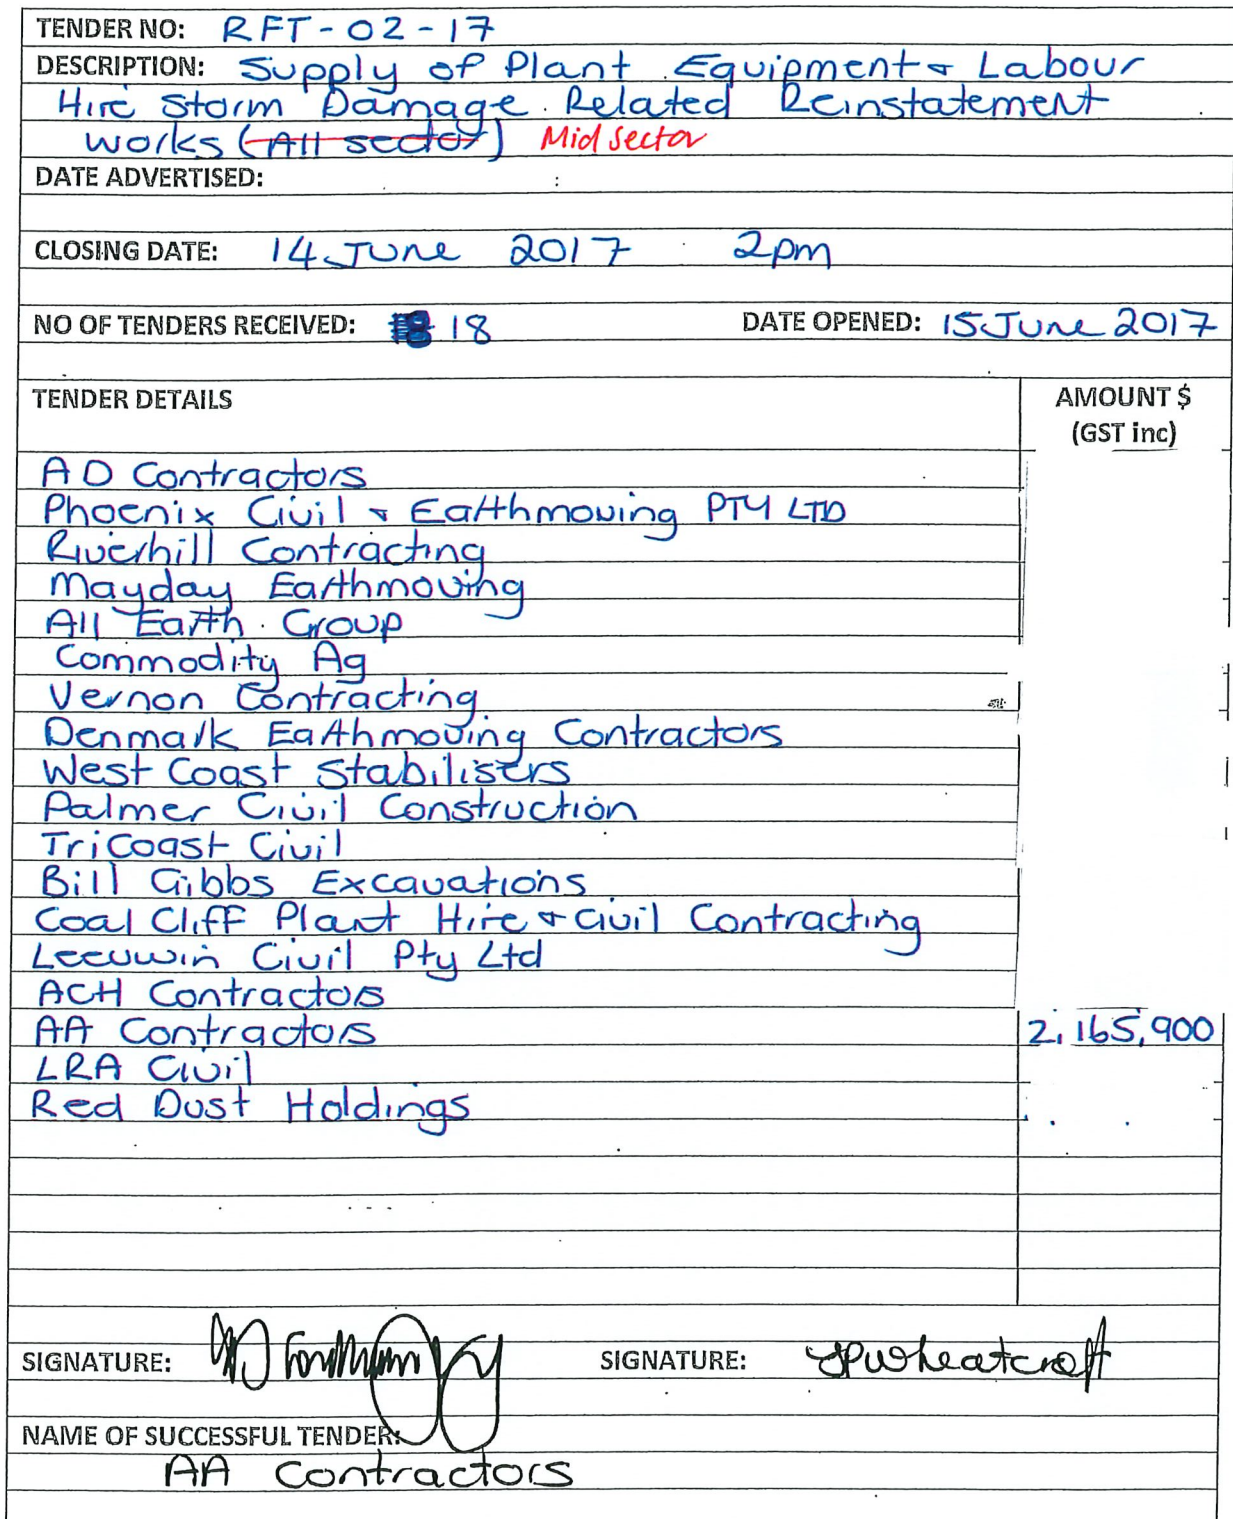 TENDER NO: RFT-02-17
DESCRIPTION: Supply of Plant Equipment & Labour
Hire Storm Damage Related Reinstatement
works (All sector) Mid Sector
DATE ADVERTISED:
CLOSING DATE: 14 June 2017 2pm
NO OF TENDERS RECEIVED: 18 DATE OPENED: 15 June 2017
TENDER DETAILS AMOUNT $
(GST inc)
AD Contractors
Phoenix Civil & Earthmoving PTY LTD
Riverhill Contracting
Mayday Earthmoving
All Earth Group
Commodity Ag
Vernon Contracting
Denmark Earthmoving Contractors
West Coast Stabilisers
Palmer Civil Construction
TriCoast Civil
Bill Gibbs Excavations
Coal Cliff Plant Hire & Civil Contracting
Leeuwin Civil Pty Ltd
ACH Contractors
AA Contractors 2,165,900
LRA Civil
Red Dust Holdings
SIGNATURE: SIGNATURE: JPWheatcroft
NAME OF SUCCESSFUL TENDER:
AA Contractors